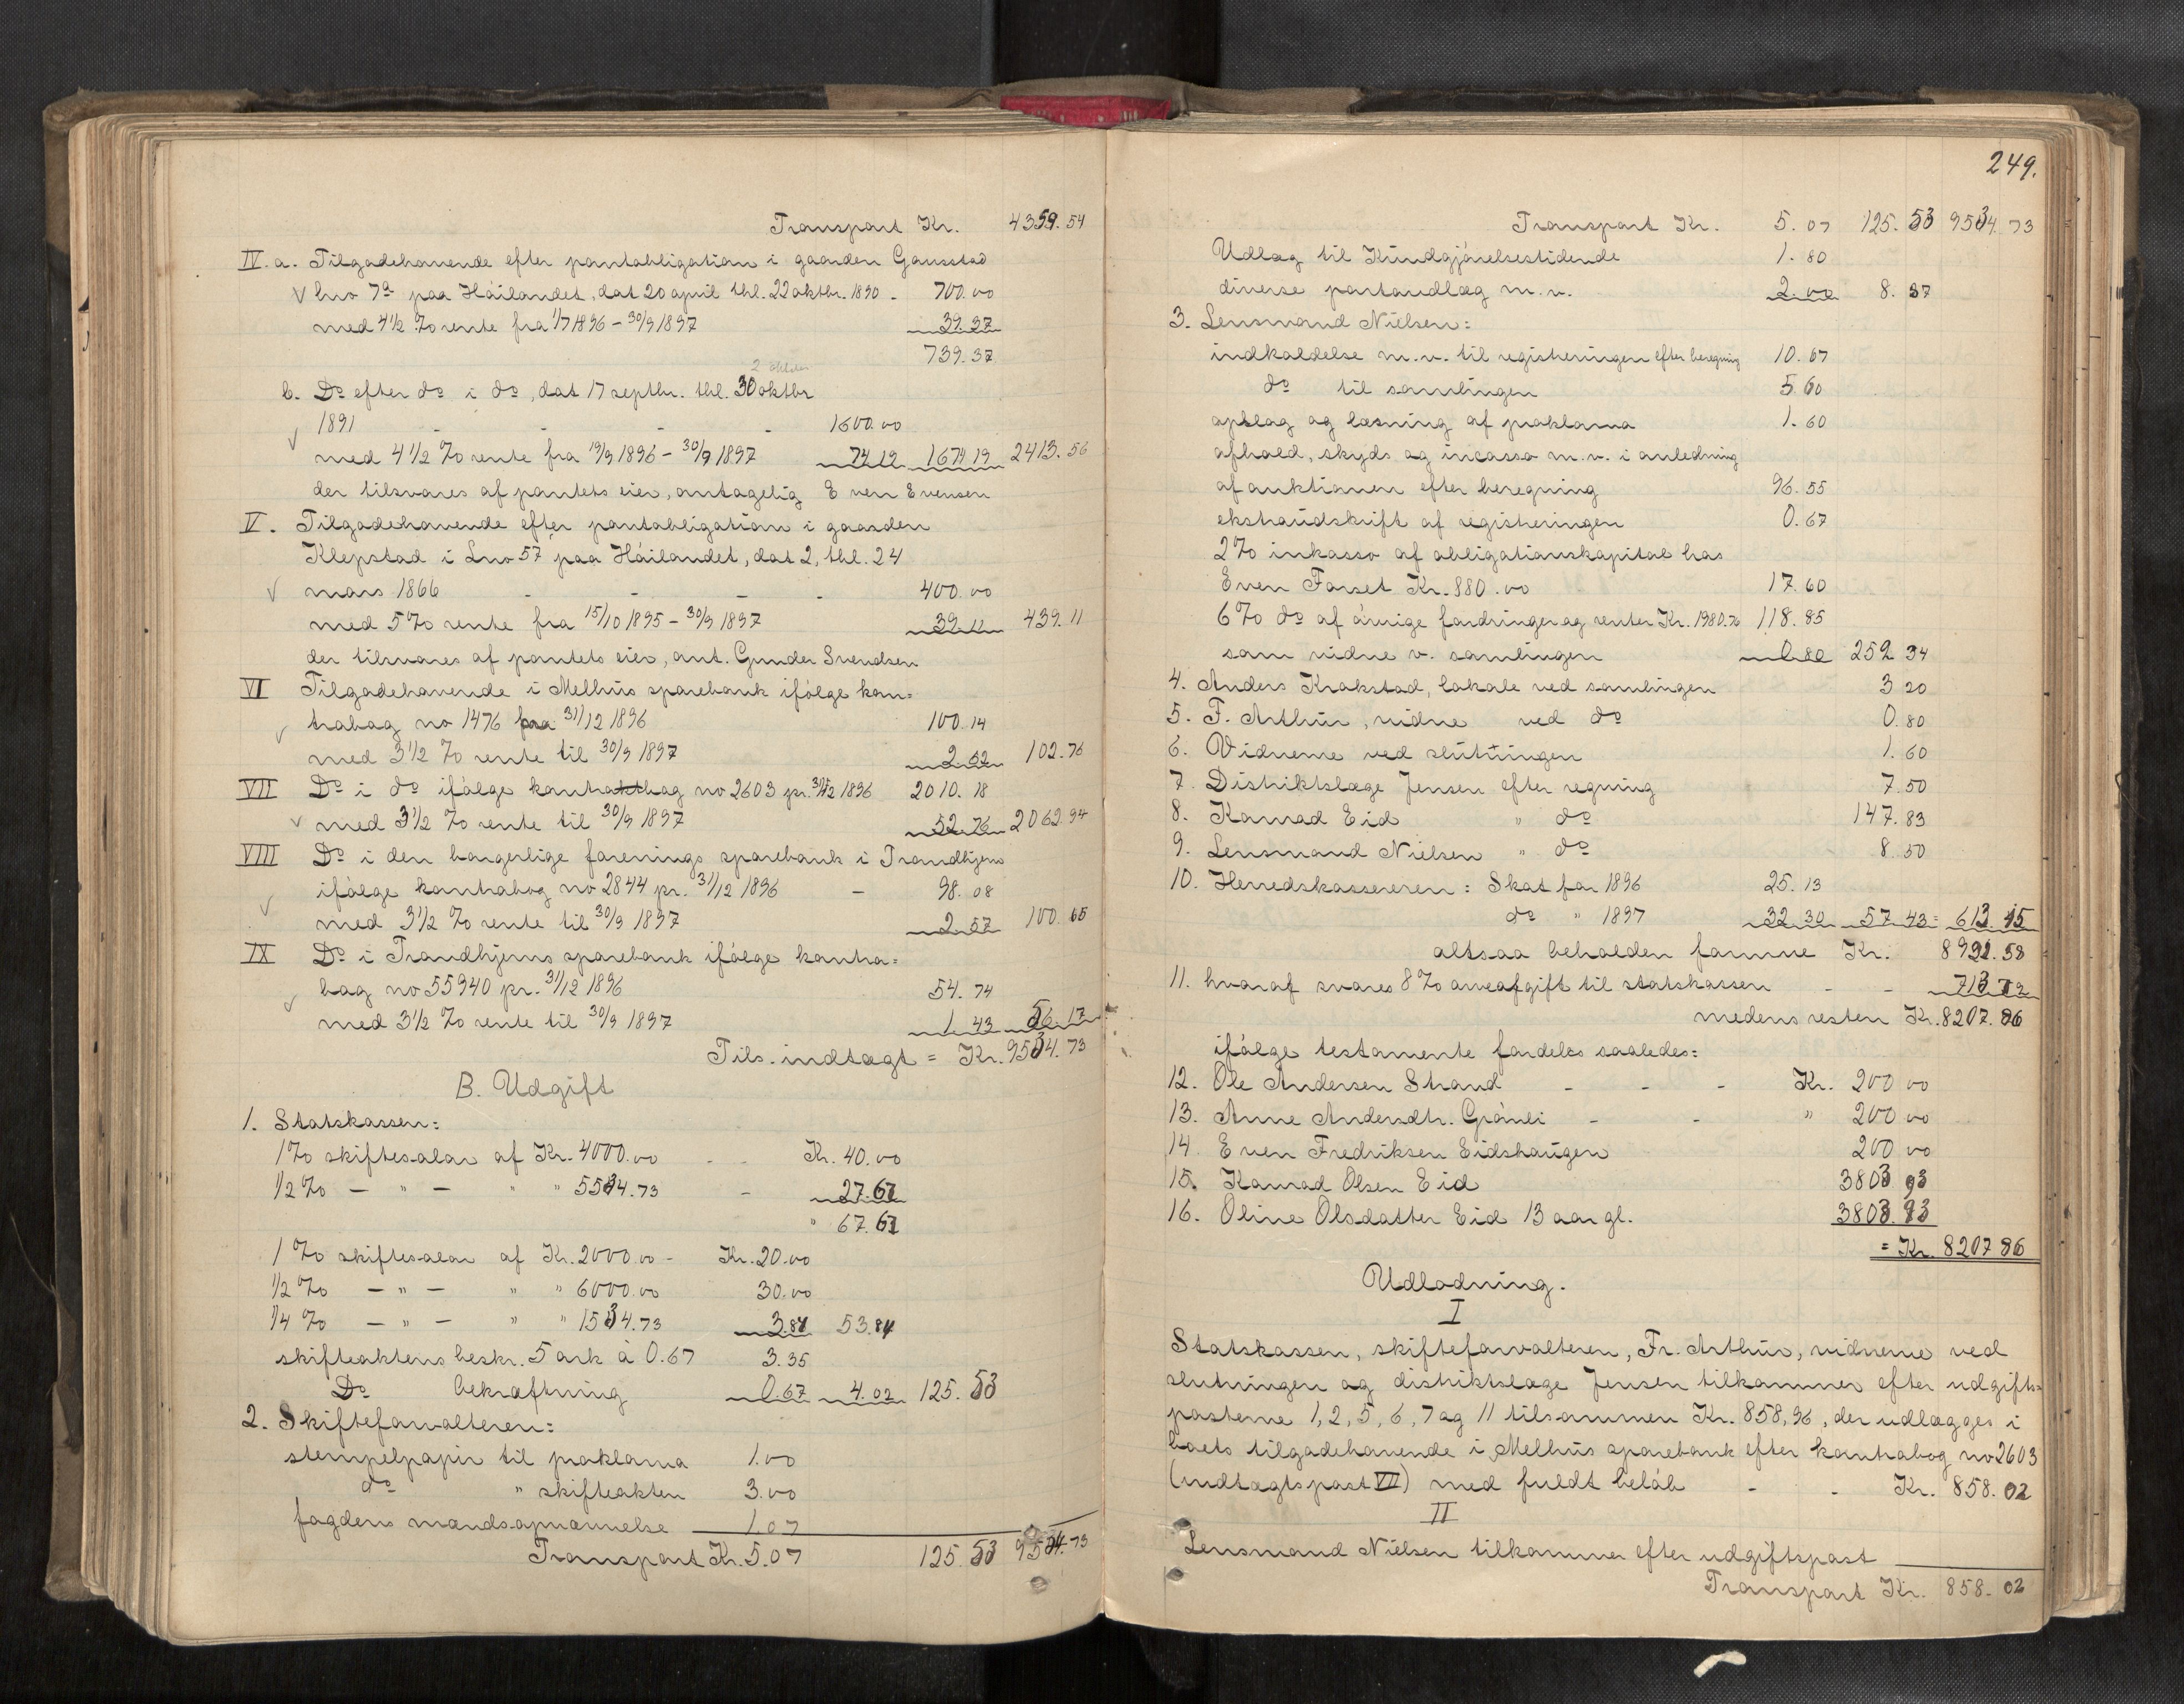 Transport Kr. 4359.54
IV. a. Tilgodehavende efter pantobligation i gaarden Gaustad
lno 7a paa Høilandet, dat 20 april thl. 22 oktbr. 1890 - 700.00
med 4 1/2 % rente fra 1/7 1896 - 30/9 1897 39.37
739.37
2 oktober
b. Do efter do i do, dat 17 septbr. thl. 30 oktbr
1891 - - - - 1600.00
med 4 1/2 % rente fra 19/9 1896 - 30/9 1897 74 19 1674 19 2413.56
der tilsvares af pantets eier, antagelig Even Evensen
V. Tilgodehavende efter pantobligation i gaarden
Klepstad i Lno 57 paa Høilandet, dat 2, thl. 24
mars 1866 - - - - 400.00
med 5 % rente fra 15/10 1895 - 30/9 1897 39.11 439.11
der tilsvares af pantets eier, ant. Gunder Svendsen
VI Tilgodehavende i Melhus sparebank ifølge kon=
trabog no 1476 fra 31/12 1896 100.14
med 3 1/2 % rente til 30/9 1897 2.62 102.76
VII Do i do ifølge kontrabog no 2603 pr. 31/12 1896 2010.18
med 3 1/2 % rente til 30/9 1897 52.76 2062.94
VIII Do i den borgerlige forenings sparebank i Trondhjem
ifølge kontrabog no 2844 pr. 31/12 1896 - 98.08
med 3 1/2 % rente til 30/9 1897 2.57 100.65
IX Do i Trondhjems sparebank ifølge kontra=
bog no 55940 pr. 31/12 1896 54.74
med 3 1/2 % rente til 30/9 1897 1 43 56.17
Tils. indtægt = Kr. 9534.73
B. Udgift
1. Statskassen:
1 % skiftesalær af Kr. 4000.00 - - Kr. 40.00
1/2 % - " - " " 5534.73 - 27.67
" 67.67
1 % skiftesalær af Kr. 2000.00 - Kr. 20.00
1/2 % - " - " " 6000.00 30.00
1/4 % - " - " " 1534.73 3.84 53.84
skifteaktens beskr. 5 ark à 0.67 3.35
Do bekræftning 0.67 4.02 125.53
2. Skifteforvalteren:
stempelpapir til proklama 1.00
do " skifteakten 3.00
fogdens mandsopnævnelse 1.07
Transport Kr. 5.07 125.53 9534.73
249.
Transport Kr. 5.07 125.53 9534.73
Udlæg til Kundgjørelsestidende 1.80
diverse portoudlæg m.v. 2.00 8.37
3. Lensmand Nielsen:
indkaldelse m.v. til registreringen efter beregning 10.67
do til samlingen 5.60
opslag og læsning af proklama 1.60
afhold, skyds og incasso m.v. i anledning
af auktionen efter beregning 96.55
ekstraudskrift af registreringen 0.67
2 % inkasso af obligationskapital hos
Even Forset Kr. 880.00 17.60
6 % do af øvrige fordringer og renter Kr. 1980.76 118.85
som vidne v. samlingen 0.80 252 34
4. Anders Krokstad, lokale ved samlingen 3 20
5. F. Arthur, vidne ved do 0.80
6. Vidnerne ved slutningen 1.60
7. Distriktslæge Jensen efter regning 7.50
8. Konrad Eid " do 147.83
9. Lensmand Nielsen " do 8.50
10. Herredskassereren: Skat for 1896 25.13
do " 1897 32.30 57 43 = 613.15
altsaa beholden formue Kr. 8921.58
11. hvoraf svares 8 % arveafgift til statskassen - - 713 72
medens resten Kr. 8207.86
ifølge testamente fordeles saaledes:
12. Ole Andersen Strand - - - Kr. 200 00
13. Anne Andersdtr. Grønli - - " 200 00
14 Even Fredriksen Eidshaugen 200 00
15. Konrad Olsen Eid 3803 93
16. Oline Olsdatter Eid 13 aar gl. 3803.93
= Kr. 8207 86
Udlodning.
I
Statskassen, skifteforvalteren, Fr. Arthur, vidnerne ved
slutningen og distriktslæge Jensen tilkommer efter udgifts=
posterne 1, 2, 5, 6, 7 og 11 tilsammen Kr. 858,96, der udlægges i
boets tilgodehavende i Melhus sparebank efter kontrabog no 2603
(indtægtspost VII) med fuldt beløb - - Kr. 858.02
II
Lensmand Nielsen tilkommer efter udgiftspost
Transport Kr. 858.02